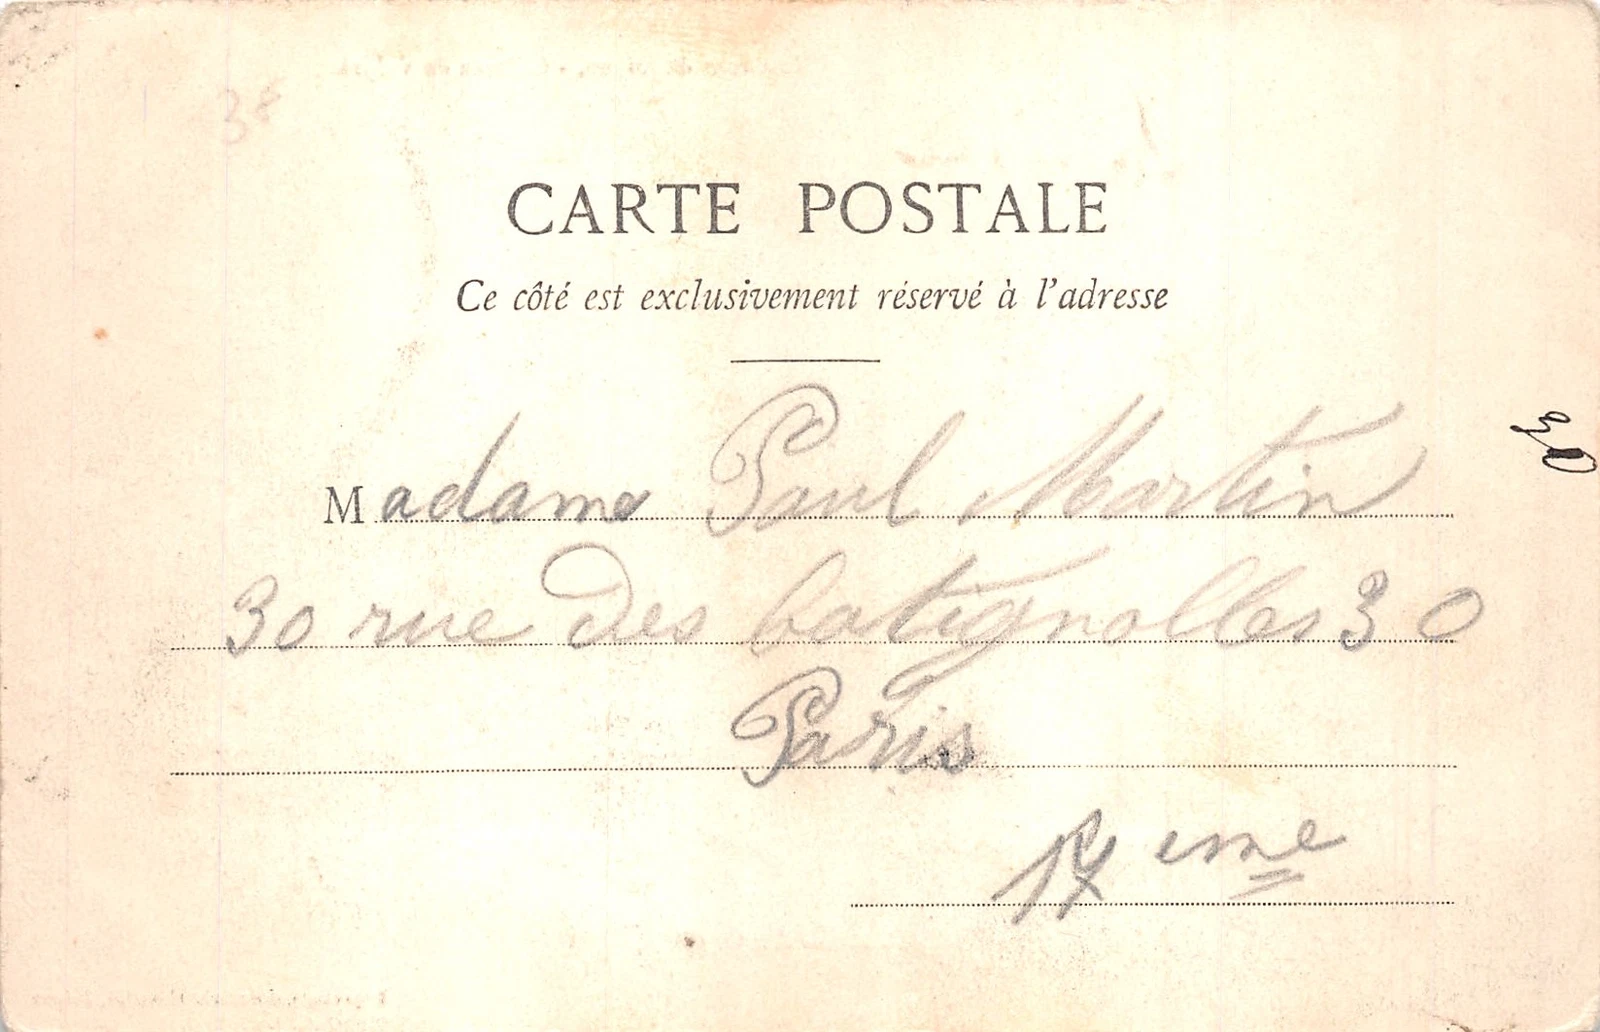 CARTE POSTALE
Ce côté est exclusivement réservé à l'adresse
Madame Paul Martin
30 rue des batignolles 30
Paris
17 eme